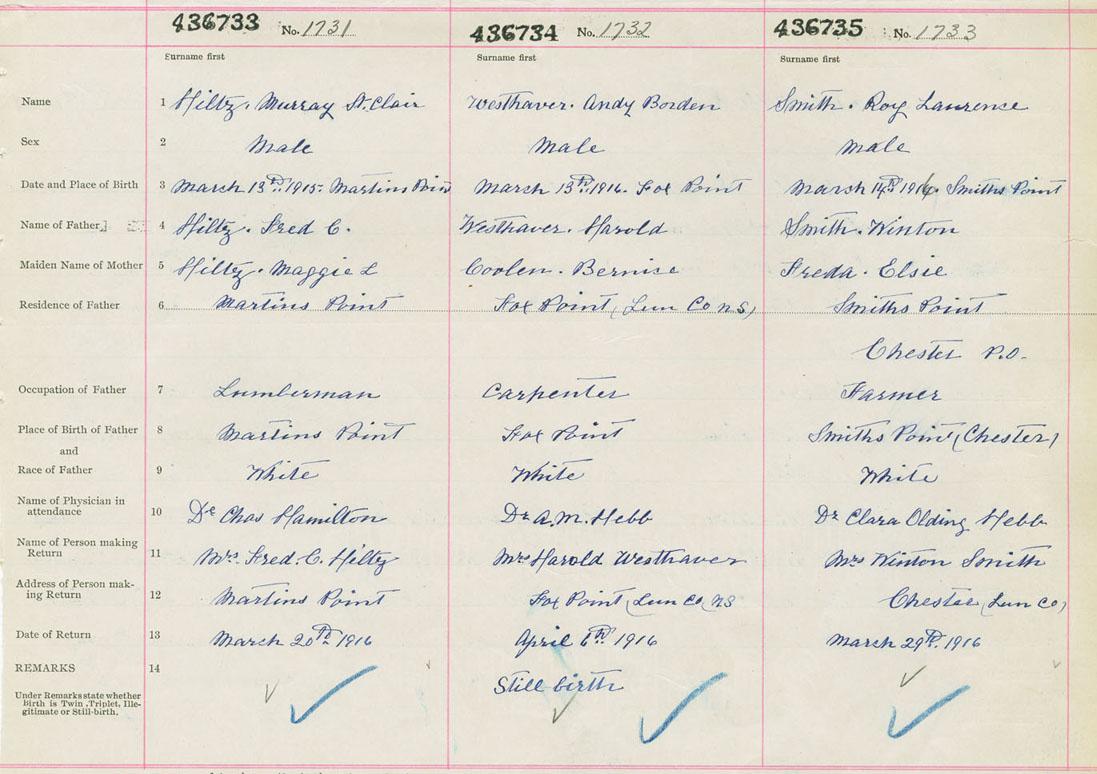 436733 No. 1731 436734 No. 1732 436735 No. 1733
Surname first Surname first Surname first
Name 1 Hiltz. Murray St. Clair Westhaver. Andy Borden Smith. Roy Laurence
Sex 2 Male Male Male
Date and Place of Birth 3 March 13th. 1915. Martins Poin March 13th. 1916. Fox Point March 14th 1916. Smiths Point
Name of Father 4 Hiltz. Fred C. Westhaver. Harold Smith. Winton
Maiden Name of Mother 5 Hiltz. Maggie L Coolen. Bernise Freda. Elsie
Residence of Father 6 Martins Point Fox Point (Lun Co N.S) Smiths Point
Chester P.O.
Occupation of Father 7 Lumberman Carpenter Farmer
Place of Birth of Father 8 Martins Point Fox Point Smiths Point (Chester)
and
Race of Father 9 White White White
Name of Physician in
attendance 10 Dr Chas Hamilton Dr A.M. Hebb Dr Clara Olding Hebb
Name of Person making
Return 11 Mrs. Fred. C. Hiltz Mrs Harold Westhaver Mrs Winton Smith
Address of Person mak-
ing Return 12 Martins Point Fox Point (Lun Co, NS Chester (Lun Co)
Date of Return 13 March 20th 1916 April 6th. 1916 March 29th. 1916
REMARKS 14
Still birth
Under Remarks state whether
Birth is Twin, Triplet, Ille-
gitimate or Still-birth.